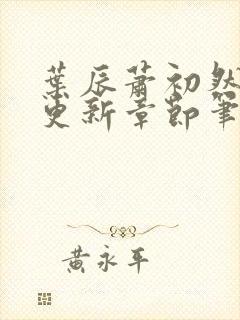 葉辰蕭初然
更新章節筆
黃永平